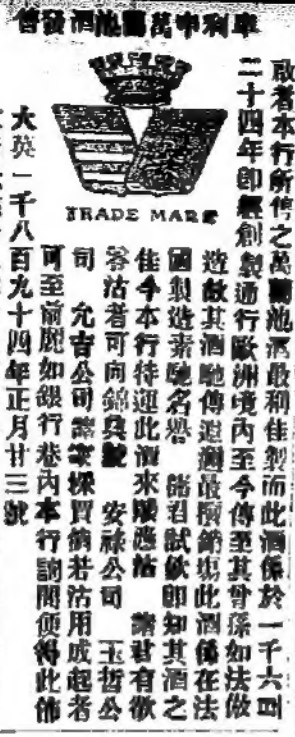 利申萬蘭池酒發售
TRADE MARK
啟者本行所售之萬蘭池酒最利佳製而此酒係於一千六百
二十四年即經創製通行歐洲境內至今傳至其曾孫如法做
造故其酒馳傳遐邇最廣銷塲此酒係在法
國製造素馳名譽 諸君試飲即知其酒之
佳今本行特迎此酒來應沽 諸君有欲
零沽者可向錦興號 安祿公司 玉哲公
司 允吉公司諸家採買倘若沽用成起者
可至前麗如銀行巷內本行詢問便得此佈
大英一千八百九十四年正月廿三號